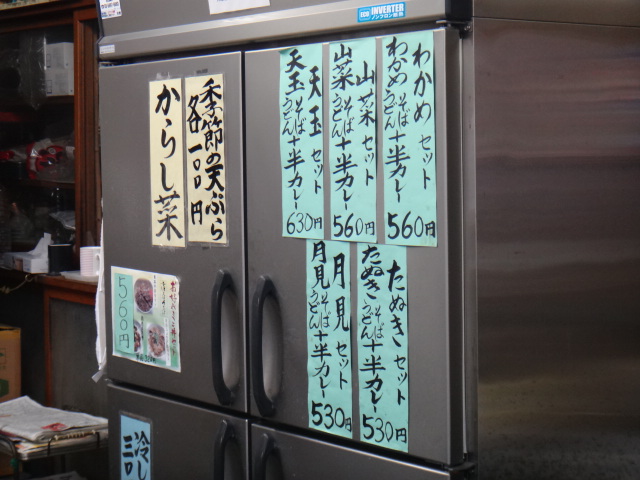 INVERTER
ノンフロン断熱
わかめセット
わかめそばうどん+半カレー
560円
山菜セット
山菜そばうどん+半カレー
560円
天玉セット
天玉そばうどん+半カレー
630円
たぬきセット
たぬきそばうどん+半カレー
530円
月見セット
月見そばうどん+半カレー
530円
季節の天ぷら
各一〇〇円
からし菜
560円
冷し